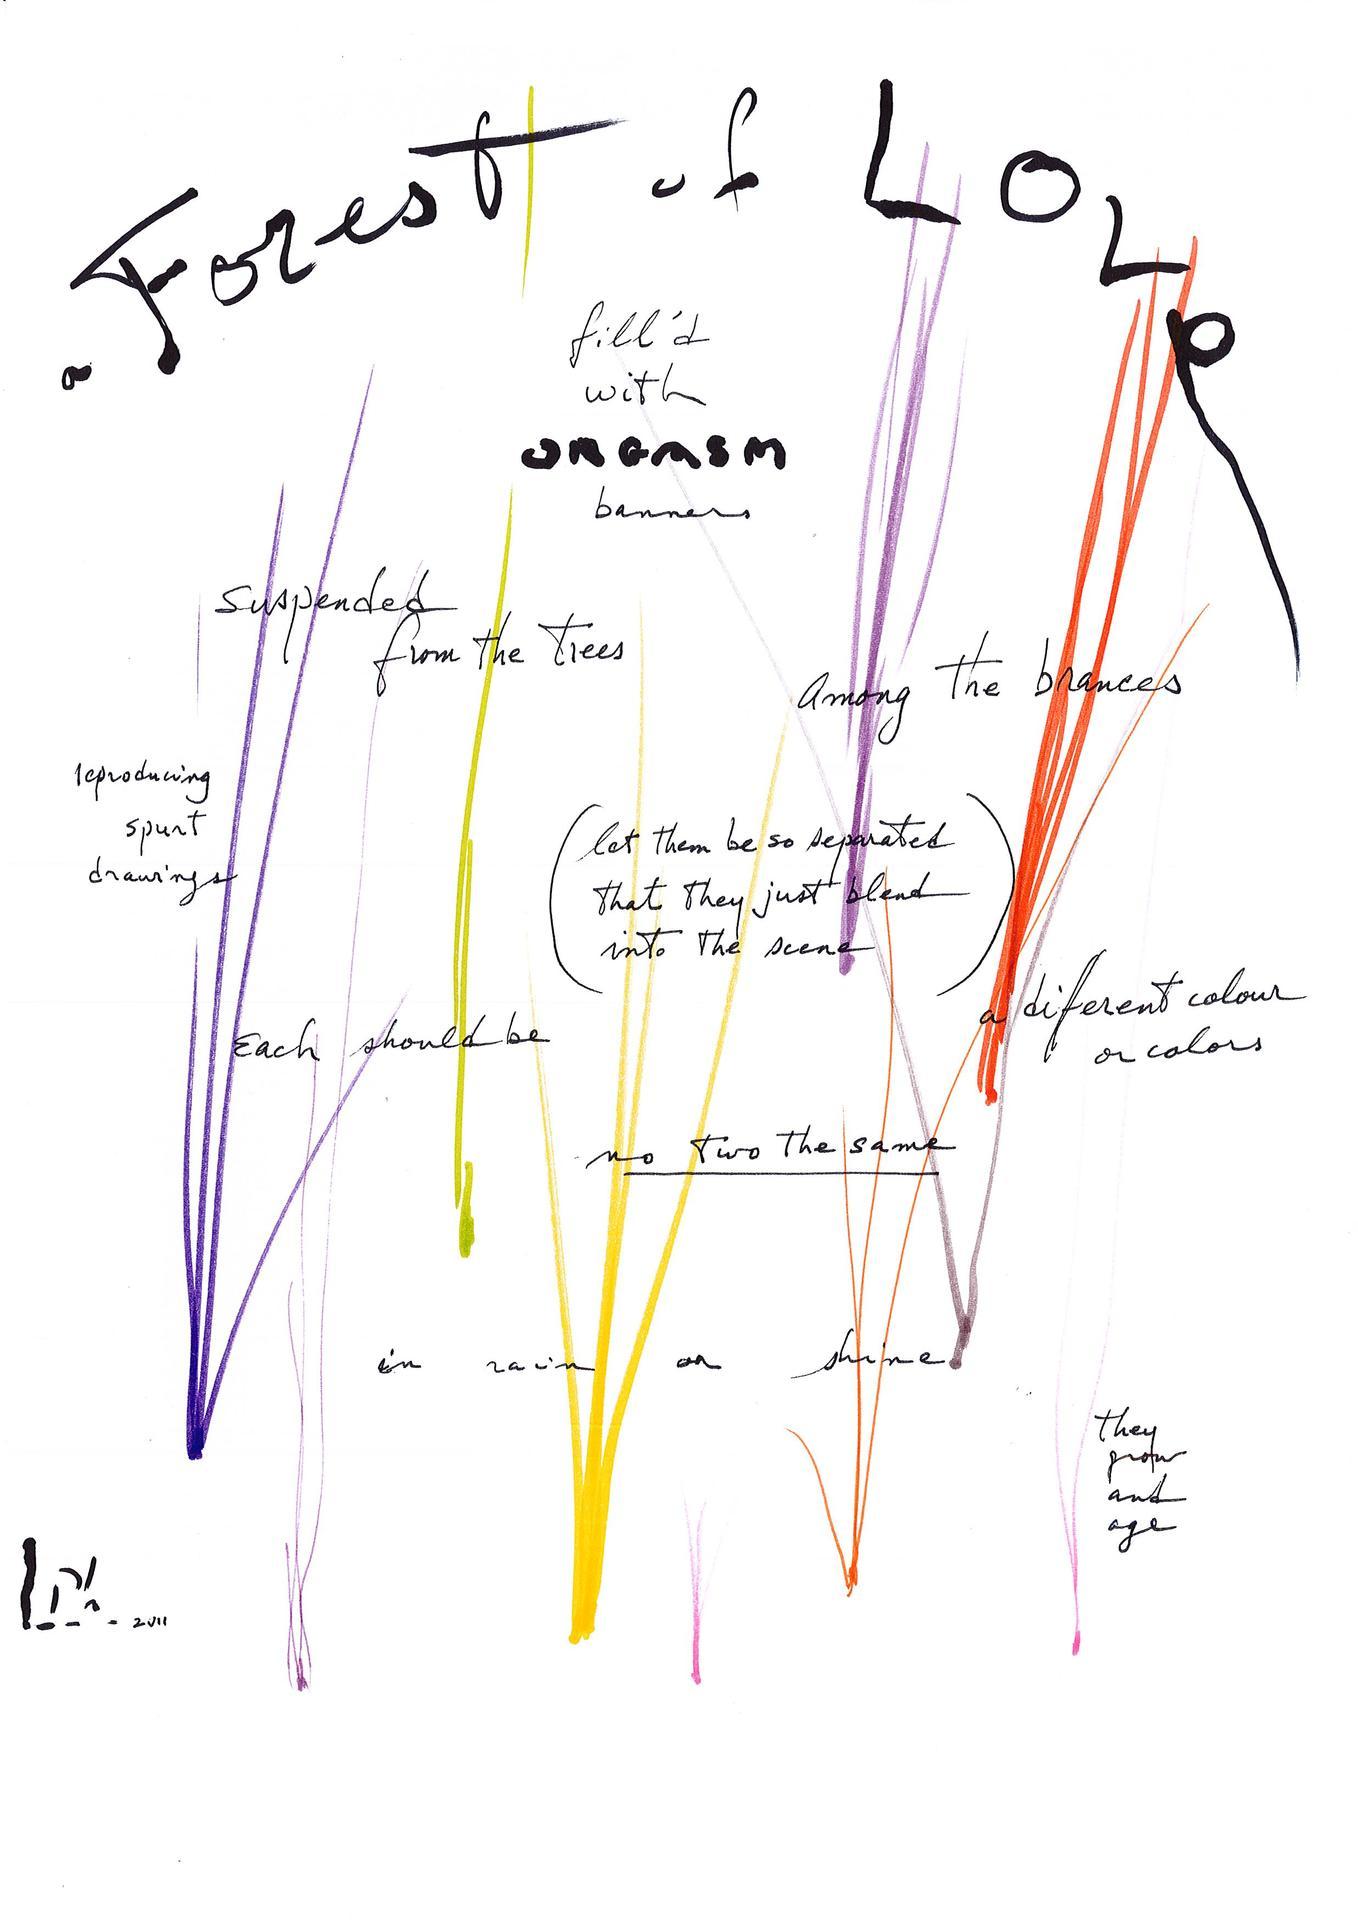 a Forest of LOLo
fill'd
with
ORGASM
banners
suspended
from the trees
Among the brances
reproducing
spurt
drawings
(let them be so separated
that they just blend
into the scene)
Each should be
a diferent colour
or colors
no two the same
in rain or shine
they
grow
and
age
2011